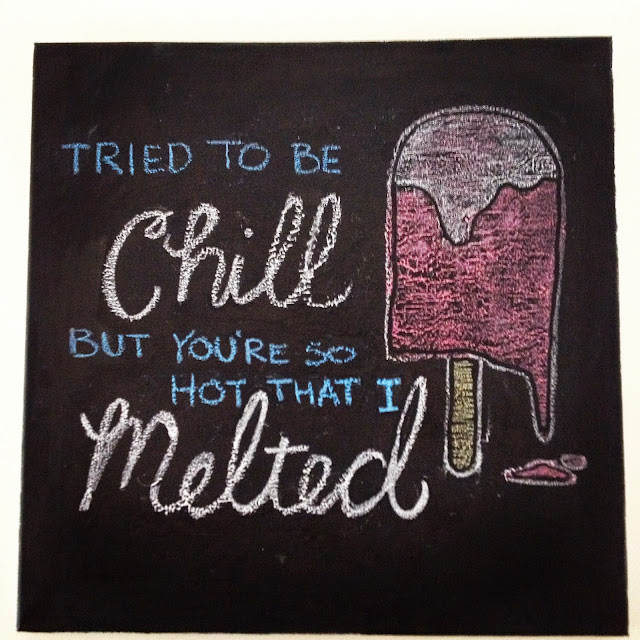 TRIED TO BE
Chill
BUT YOU'RE SO
HOT THAT I
Melted